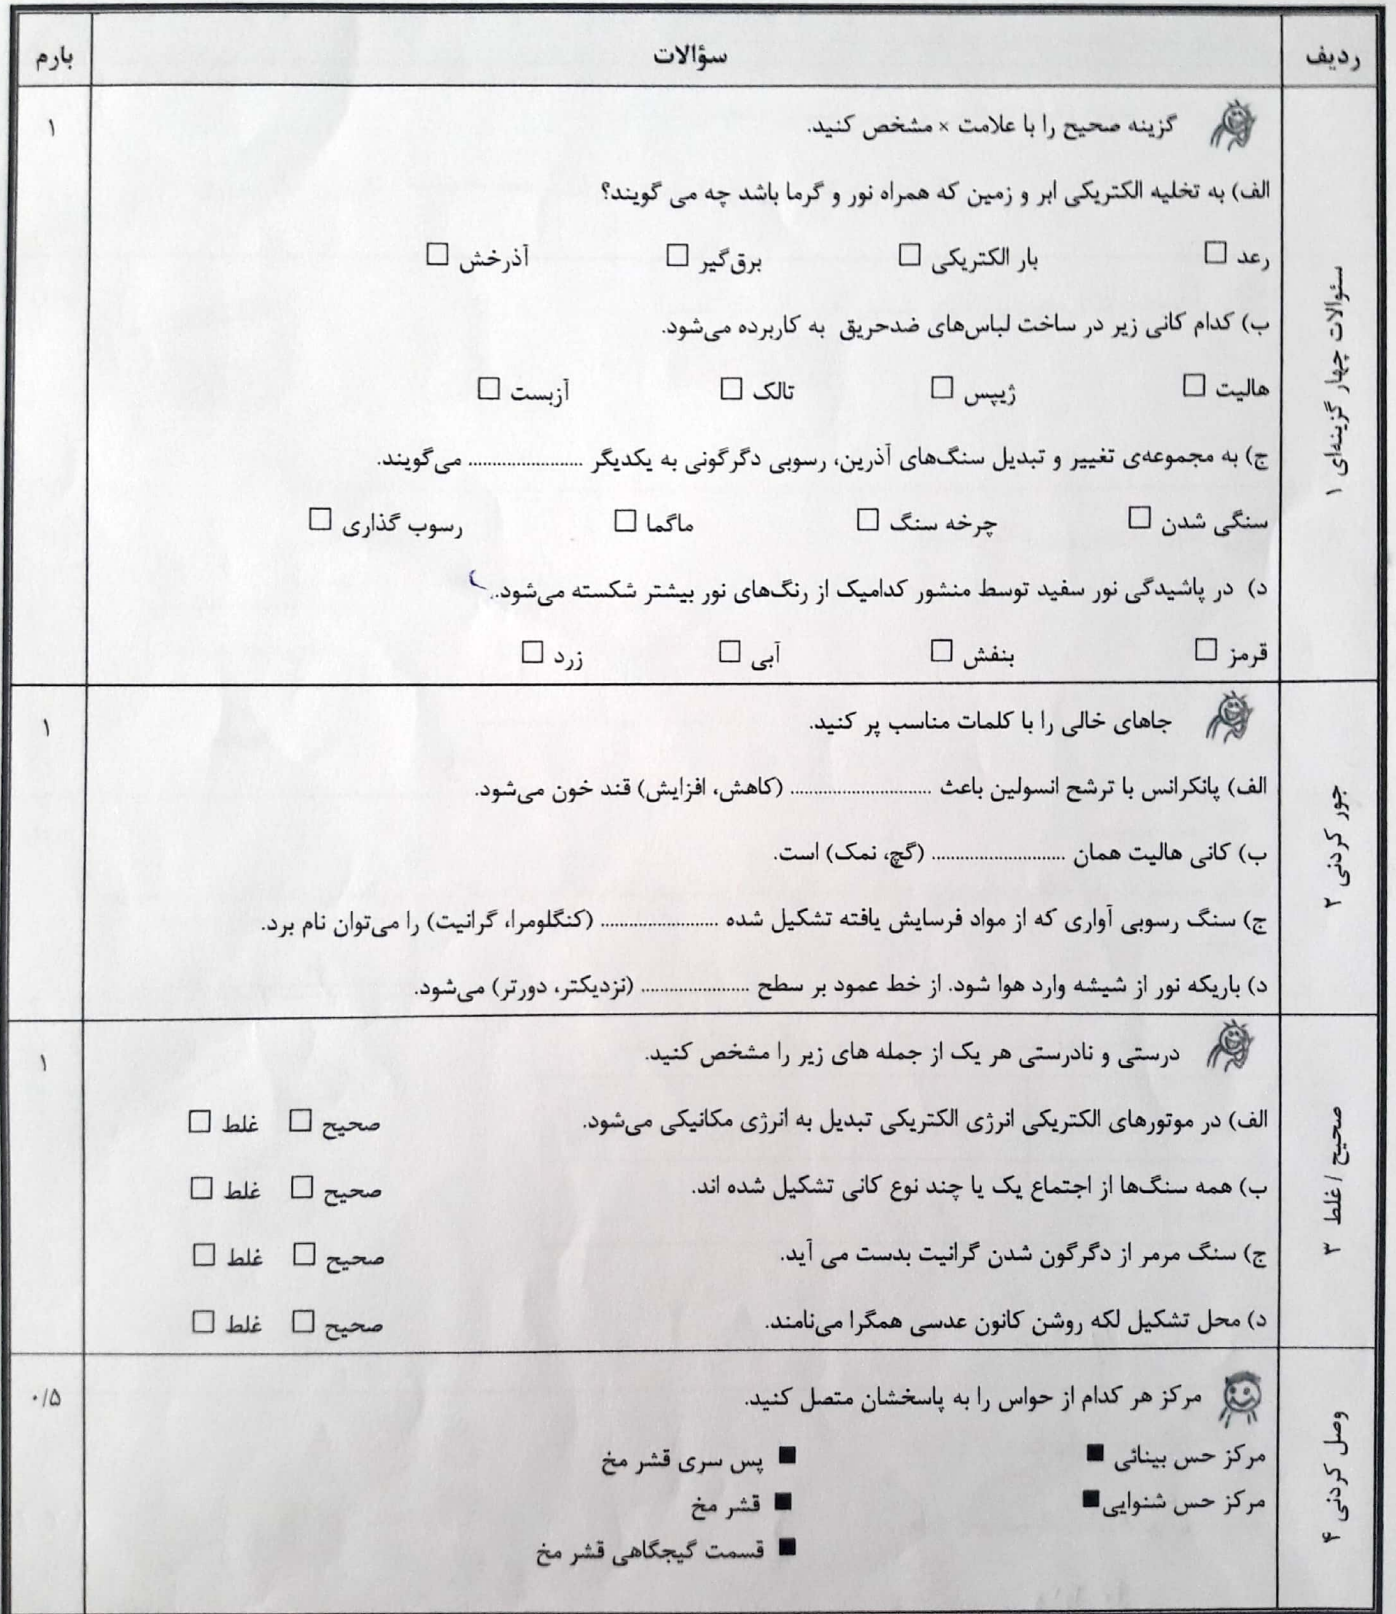 ردیف سؤالات بارم
سئوالات چهار گزینه‌ای ۱
گزینه صحیح را با علامت × مشخص کنید. ۱
الف) به تخلیه الکتریکی ابر و زمین که همراه نور و گرما باشد چه می گویند؟
رعد □ بار الکتریکی □ برق‌گیر □ آذرخش □
ب) کدام کانی زیر در ساخت لباس‌های ضدحریق به کاربرده می‌شود.
هالیت □ ژیپس □ تالک □ آزبست □
ج) به مجموعه‌ی تغییر و تبدیل سنگ‌های آذرین، رسوبی دگرگونی به یکدیگر ........................ می‌گویند.
سنگی شدن □ چرخه سنگ □ ماگما □ رسوب گذاری □
د) در پاشیدگی نور سفید توسط منشور کدامیک از رنگ‌های نور بیشتر شکسته می‌شود..
قرمز □ بنفش □ آبی □ زرد □
جور کردنی ۲
جاهای خالی را با کلمات مناسب پر کنید. ۱
الف) پانکرانس با ترشح انسولین باعث ............................. (کاهش، افزایش) قند خون می‌شود.
ب) کانی هالیت همان ............................ (گچ، نمک) است.
ج) سنگ رسوبی آواری که از مواد فرسایش یافته تشکیل شده ......................... (کنگلومرا، گرانیت) را می‌توان نام برد.
د) باریکه نور از شیشه وارد هوا شود. از خط عمود بر سطح ....................... (نزدیکتر، دورتر) می‌شود.
صحیح / غلط ۳
درستی و نادرستی هر یک از جمله های زیر را مشخص کنید. ۱
الف) در موتورهای الکتریکی انرژی الکتریکی تبدیل به انرژی مکانیکی می‌شود. صحیح □ غلط □
ب) همه سنگ‌ها از اجتماع یک یا چند نوع کانی تشکیل شده اند. صحیح □ غلط □
ج) سنگ مرمر از دگرگون شدن گرانیت بدست می آید. صحیح □ غلط □
د) محل تشکیل لکه روشن کانون عدسی همگرا می‌نامند. صحیح □ غلط □
وصل کردنی ۴
مرکز هر کدام از حواس را به پاسخشان متصل کنید. ۰/۵
مرکز حس بینائی ■ ■ پس سری قشر مخ
مرکز حس شنوایی ■ ■ قشر مخ
■ قسمت گیجگاهی قشر مخ